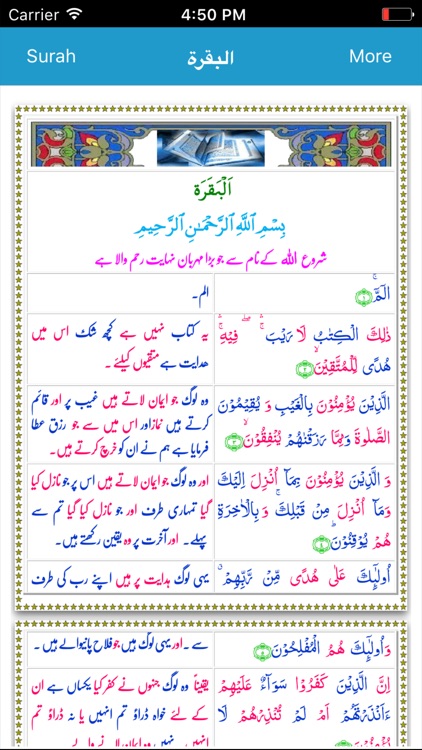 Carrier 4:50 PM
Surah البقرة More
اَلْبَقَرَة
بِسْمِ اللهِ الرَّحْمٰنِ الرَّحِيمِ
شروع اللہ کے نام سے جو بڑا مہربان نہایت رحم والا ہے
الٓمّٓ ۚ ﴿۱﴾
الم۔
ذٰلِكَ الْكِتٰبُ لَا رَيْبَ ۛۖ فِيْهِ ۛۚ
هُدًى لِّلْمُتَّقِيْنَ ۙ ﴿۲﴾
یہ کتاب نہیں ہے کچھ شک اس میں
ھدایت ہے متقیوں کیلئے۔
الَّذِيْنَ يُؤْمِنُوْنَ بِالْغَيْبِ وَ يُقِيْمُوْنَ
الصَّلٰوةَ وَمِمَّا رَزَقْنٰهُمْ يُنْفِقُوْنَ ۙ ﴿۳﴾
وہ لوگ جو ایمان لاتے ہیں غیب پر اور قائم
کرتے ہیں نماز اور اس میں سے جو رزق عطا
فرمایا ہے ہم نے ان کو خرچ کرتے ہیں۔
وَ الَّذِيْنَ يُؤْمِنُوْنَ بِمَآ اُنْزِلَ اِلَيْكَ
وَمَآ اُنْزِلَ مِنْ قَبْلِكَ ۚ وَبِالْاٰخِرَةِ
هُمْ يُوْقِنُوْنَ ؕ ﴿۴﴾
اور وہ لوگ جو ایمان لاتے ہیں اس پر جو نازل کیا
گیا تمہاری طرف اور جو نازل کیا گیا تم سے
پہلے۔ اور آخرت پر وہ یقین رکھتے ہیں۔
اُولٰٓئِكَ عَلٰى هُدًى مِّنْ رَّبِّهِمْ ۗ
یہی لوگ ہدایت پر ہیں اپنے رب کی طرف
وَاُولٰٓئِكَ هُمُ الْمُفْلِحُوْنَ ﴿۵﴾
سے۔ اور یہی لوگ ہیں جو فلاح پانیوالے ہیں۔
اِنَّ الَّذِيْنَ كَفَرُوْا سَوَآءٌ عَلَيْهِمْ
ءَاَنْذَرْتَهُمْ اَمْ لَمْ تُنْذِرْهُمْ لَا
یقیناً وہ لوگ جنہوں نے کفر کیا یکساں ہے ان
کے لئے خواہ ڈراؤ تم انہیں یا نہ ڈراؤ تم
انہیں نہیں وہ ایمان لانے والے